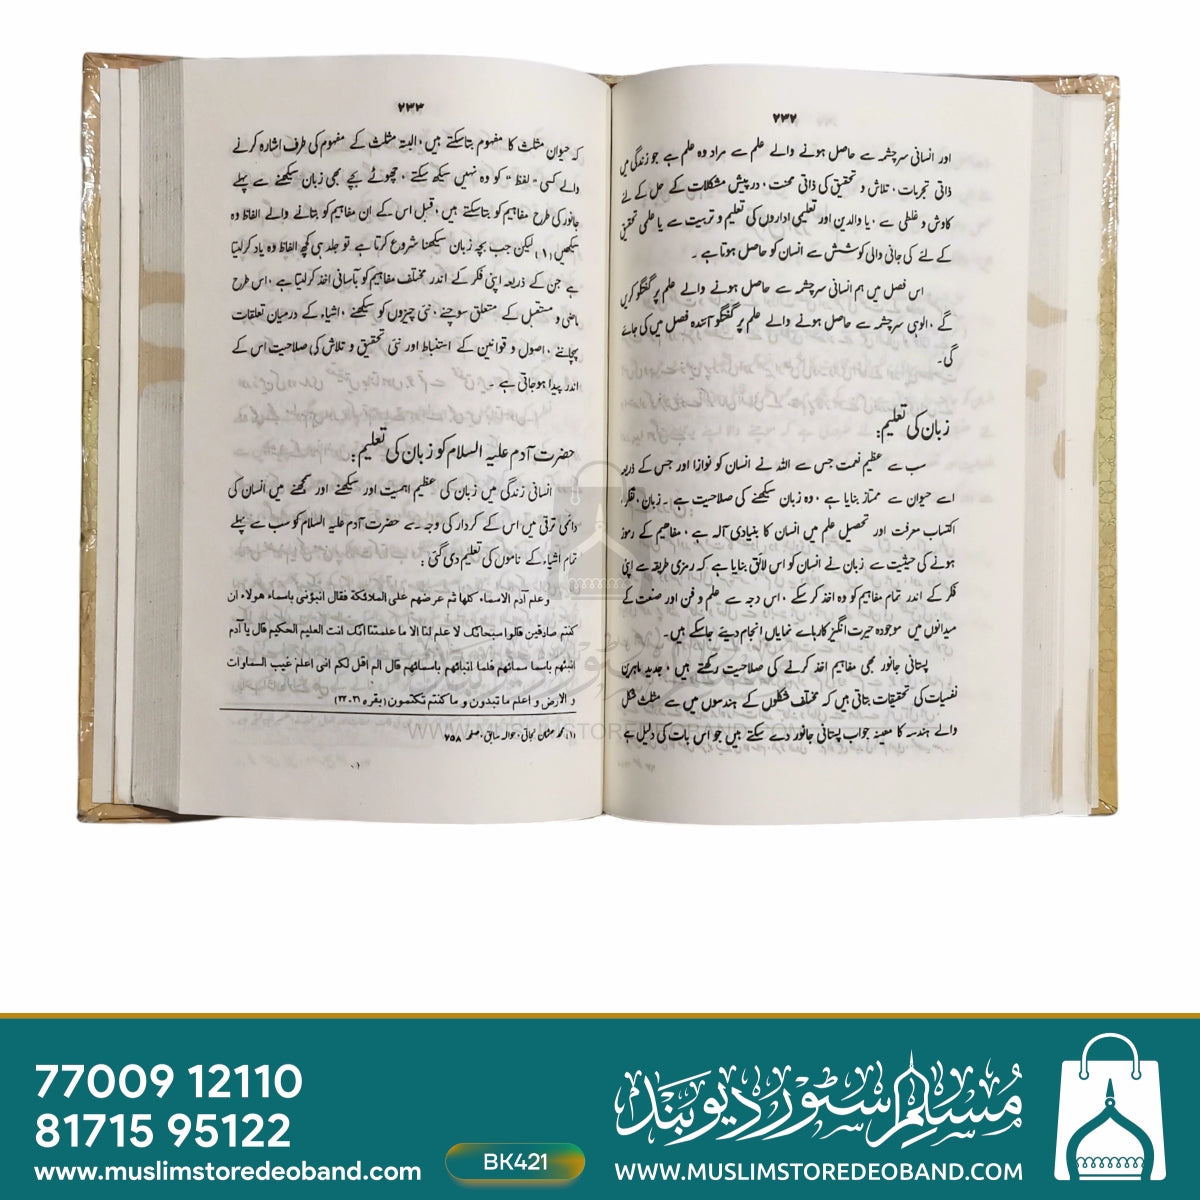 ۲۳۲
اور انسانی سرچشمہ سے حاصل ہونے والے علم سے مراد وہ علم ہے جو زندگی میں
ذاتی تجربات، تلاش و تحقیق کی ذاتی محنت، درپیش مشکلات کے حل کے لئے
کاوش و غلطی سے، یا والدین اور تعلیمی اداروں کی تعلیم و تربیت سے یا علمی تحقیق
کے لئے کی جانی والی کوشش سے انسان کو حاصل ہوتا ہے۔
اس فصل میں ہم انسانی سرچشمہ سے حاصل ہونے والے علم پر گفتگو کریں
گے، الوہی سرچشمہ سے حاصل ہونے والے علم پر گفتگو آئندہ فصل میں کی جائے
گی۔
زبان کی تعلیم:
سب سے عظیم نعمت جس سے اللہ نے انسان کو نوازا اور جس کے ذریعہ
اسے حیوان سے ممتاز بنایا ہے، وہ زبان سیکھنے کی صلاحیت ہے۔ زبان، فکر،
اکتساب معرفت اور تحصیل علم میں انسان کا بنیادی آلہ ہے، مفاہیم کے رموز
ہونے کی حیثیت سے زبان نے انسان کو اس لائق بنایا ہے کہ رمزی طریقہ سے اپنی
فکر کے اندر تمام مفاہیم کو وہ اخذ کر سکے، اس وجہ سے علم و فن اور صنعت کے
میدانوں میں موجودہ حیرت انگیز کارہائے نمایاں انجام دیئے جاسکے ہیں۔
پستانی جانور بھی مفاہیم اخذ کرنے کی صلاحیت رکھتے ہیں، جدید ماہرین
نفسیات کی تحقیقات بتاتی ہیں کہ مختلف شکلوں کے ہندسوں میں سے مثلث شکل
والے ہندسہ کا معینہ جواب پستانی جانور دے سکتے ہیں جو اس بات کی دلیل ہے
۲۳۳
کہ حیوان مثلث کا مفہوم بتاسکتے ہیں، البتہ مثلث کے مفہوم کی طرف اشارہ کرنے
والے کسی "لفظ" کو وہ نہیں سیکھ سکتے، چھوٹے بچے بھی زبان سیکھنے سے پہلے
جانور کی طرح مفاہیم کو بتاسکتے ہیں، قبل اس کے ان مفاہیم کو بتانے والے الفاظ وہ
سیکھیں (۱) لیکن جب بچہ زبان سیکھنا شروع کرتا ہے تو جلد ہی کچھ الفاظ وہ یاد کرلیتا
ہے جن کے ذریعہ اپنی فکر کے اندر مختلف مفاہیم کو بآسانی اخذ کرلیتا ہے، اس طرح
ماضی و مستقبل کے متعلق سوچنے، نئی چیزوں کو سیکھنے، اشیاء کے درمیان تعلقات
پہچاننے، اصول و قوانین کے استنباط اور نئی تحقیق و تلاش کی صلاحیت اس کے
اندر پیدا ہوجاتی ہے۔
حضرت آدم علیہ السلام کو زبان کی تعلیم:
انسانی زندگی میں زبان کی عظیم اہمیت اور سیکھنے اور سمجھنے میں انسان کی
دائمی ترقی میں اس کے کردار کی وجہ سے حضرت آدم علیہ السلام کو سب سے پہلے
تمام اشیاء کے ناموں کی تعلیم دی گئی:
وعلم آدم الاسماء كلها ثم عرضهم على الملائكة فقال انبؤنى باسماء هولاء ان
كنتم صادقين قالوا سبحانك لا علم لنا الا ما علمتنا انك انت العليم الحكيم قال يا آدم
انبئهم باسما سمائهم فلما انبائهم باسمائهم قال الم اقل لكم انى اعلم غيب السماوات
و الارض و اعلم ما تبدون و ما كنتم تكتمون (بقره ۳۱-۳۳)
(۱) محمد عثمان نجاتی، حوالہ سابق، صفحہ ۲۵۸
WWW.MUSLIMSTOREDEOBAND.COM
77009 12110
81715 95122
www.muslimstoredeoband.com
BK421
مسلم سٹور دیوبند
WWW.MUSLIMSTOREDEOBAND.COM